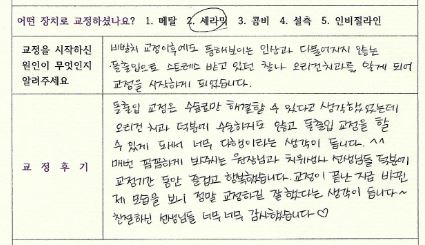 어떤 장치로 교정하셨나요? 1. 메탈 2. 세라믹 3. 콤비 4. 설측 5. 인비절라인
교정을 시작하신
원인이 무엇인지
알려주세요
비발치 교정이후에도 툭해보이는 인상과 다물어지지 않는
돌출입으로 스트레스 받고 있던 찰나 오리건치과를 알게 되어
교정을 시작하게 되었습니다.
교 정 후 기
돌출입 교정은 수술로만 해결할 수 있다고 생각했었는데
오리건 치과 덕분에 수술하지도 않고 돌출입 교정을 할
수 있게 되서 너무 다행이라는 생각이 듭니다. ^^
매번 꼼꼼하게 봐주시는 원장님과 치위생사 선생님들 덕분에
교정기간 동안 즐겁고 행복했습니다. 교정이 끝난 지금 바뀐
제 모습을 보니 정말 교정하길 잘했다는 생각이 듭니다~
친절하신 선생님들 너무너무 감사했습니다♡